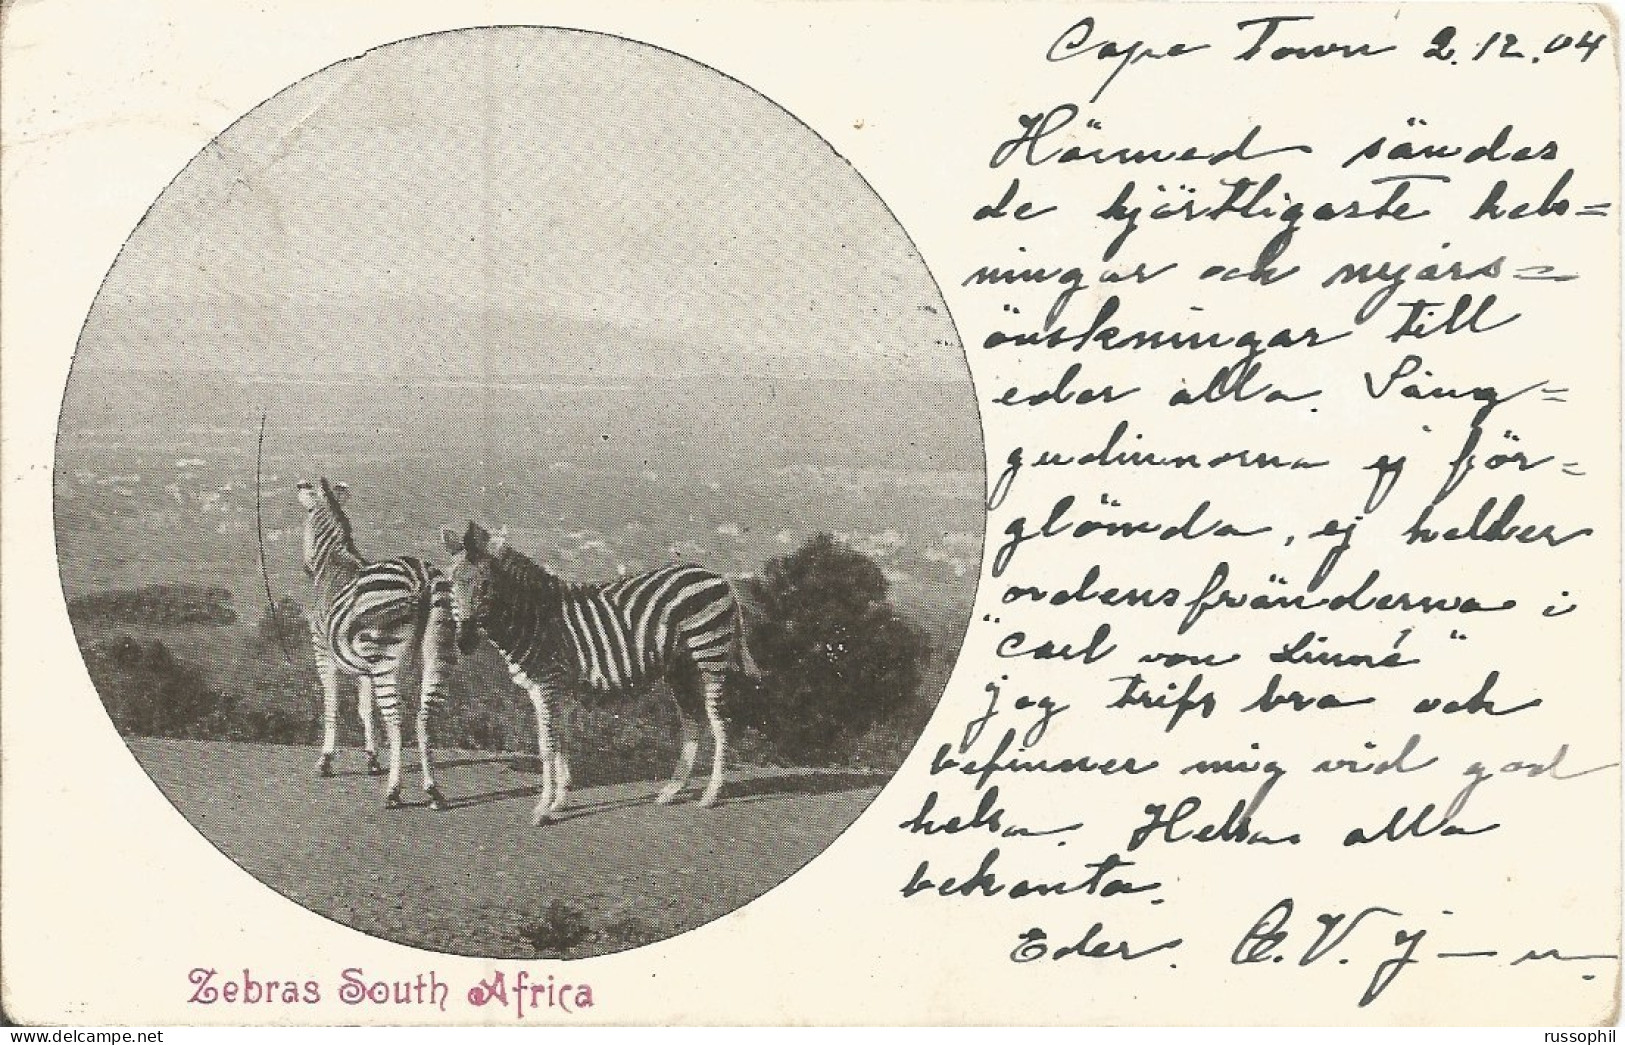 Cape Town 2.12.04
Härmed sändes
de hjärtligaste hels=
ningar och nyårs=
önskningar till
eder alla. Sång=
gudinnorna ej för=
glömda, ej heller
ordensfränderna i
"Carl von Linné"
jag trifs bra och
befinner mig vid god
helsa. Helsa alla
bekanta.
Eder. C. V. J—n.
Zebras South Africa
russophil